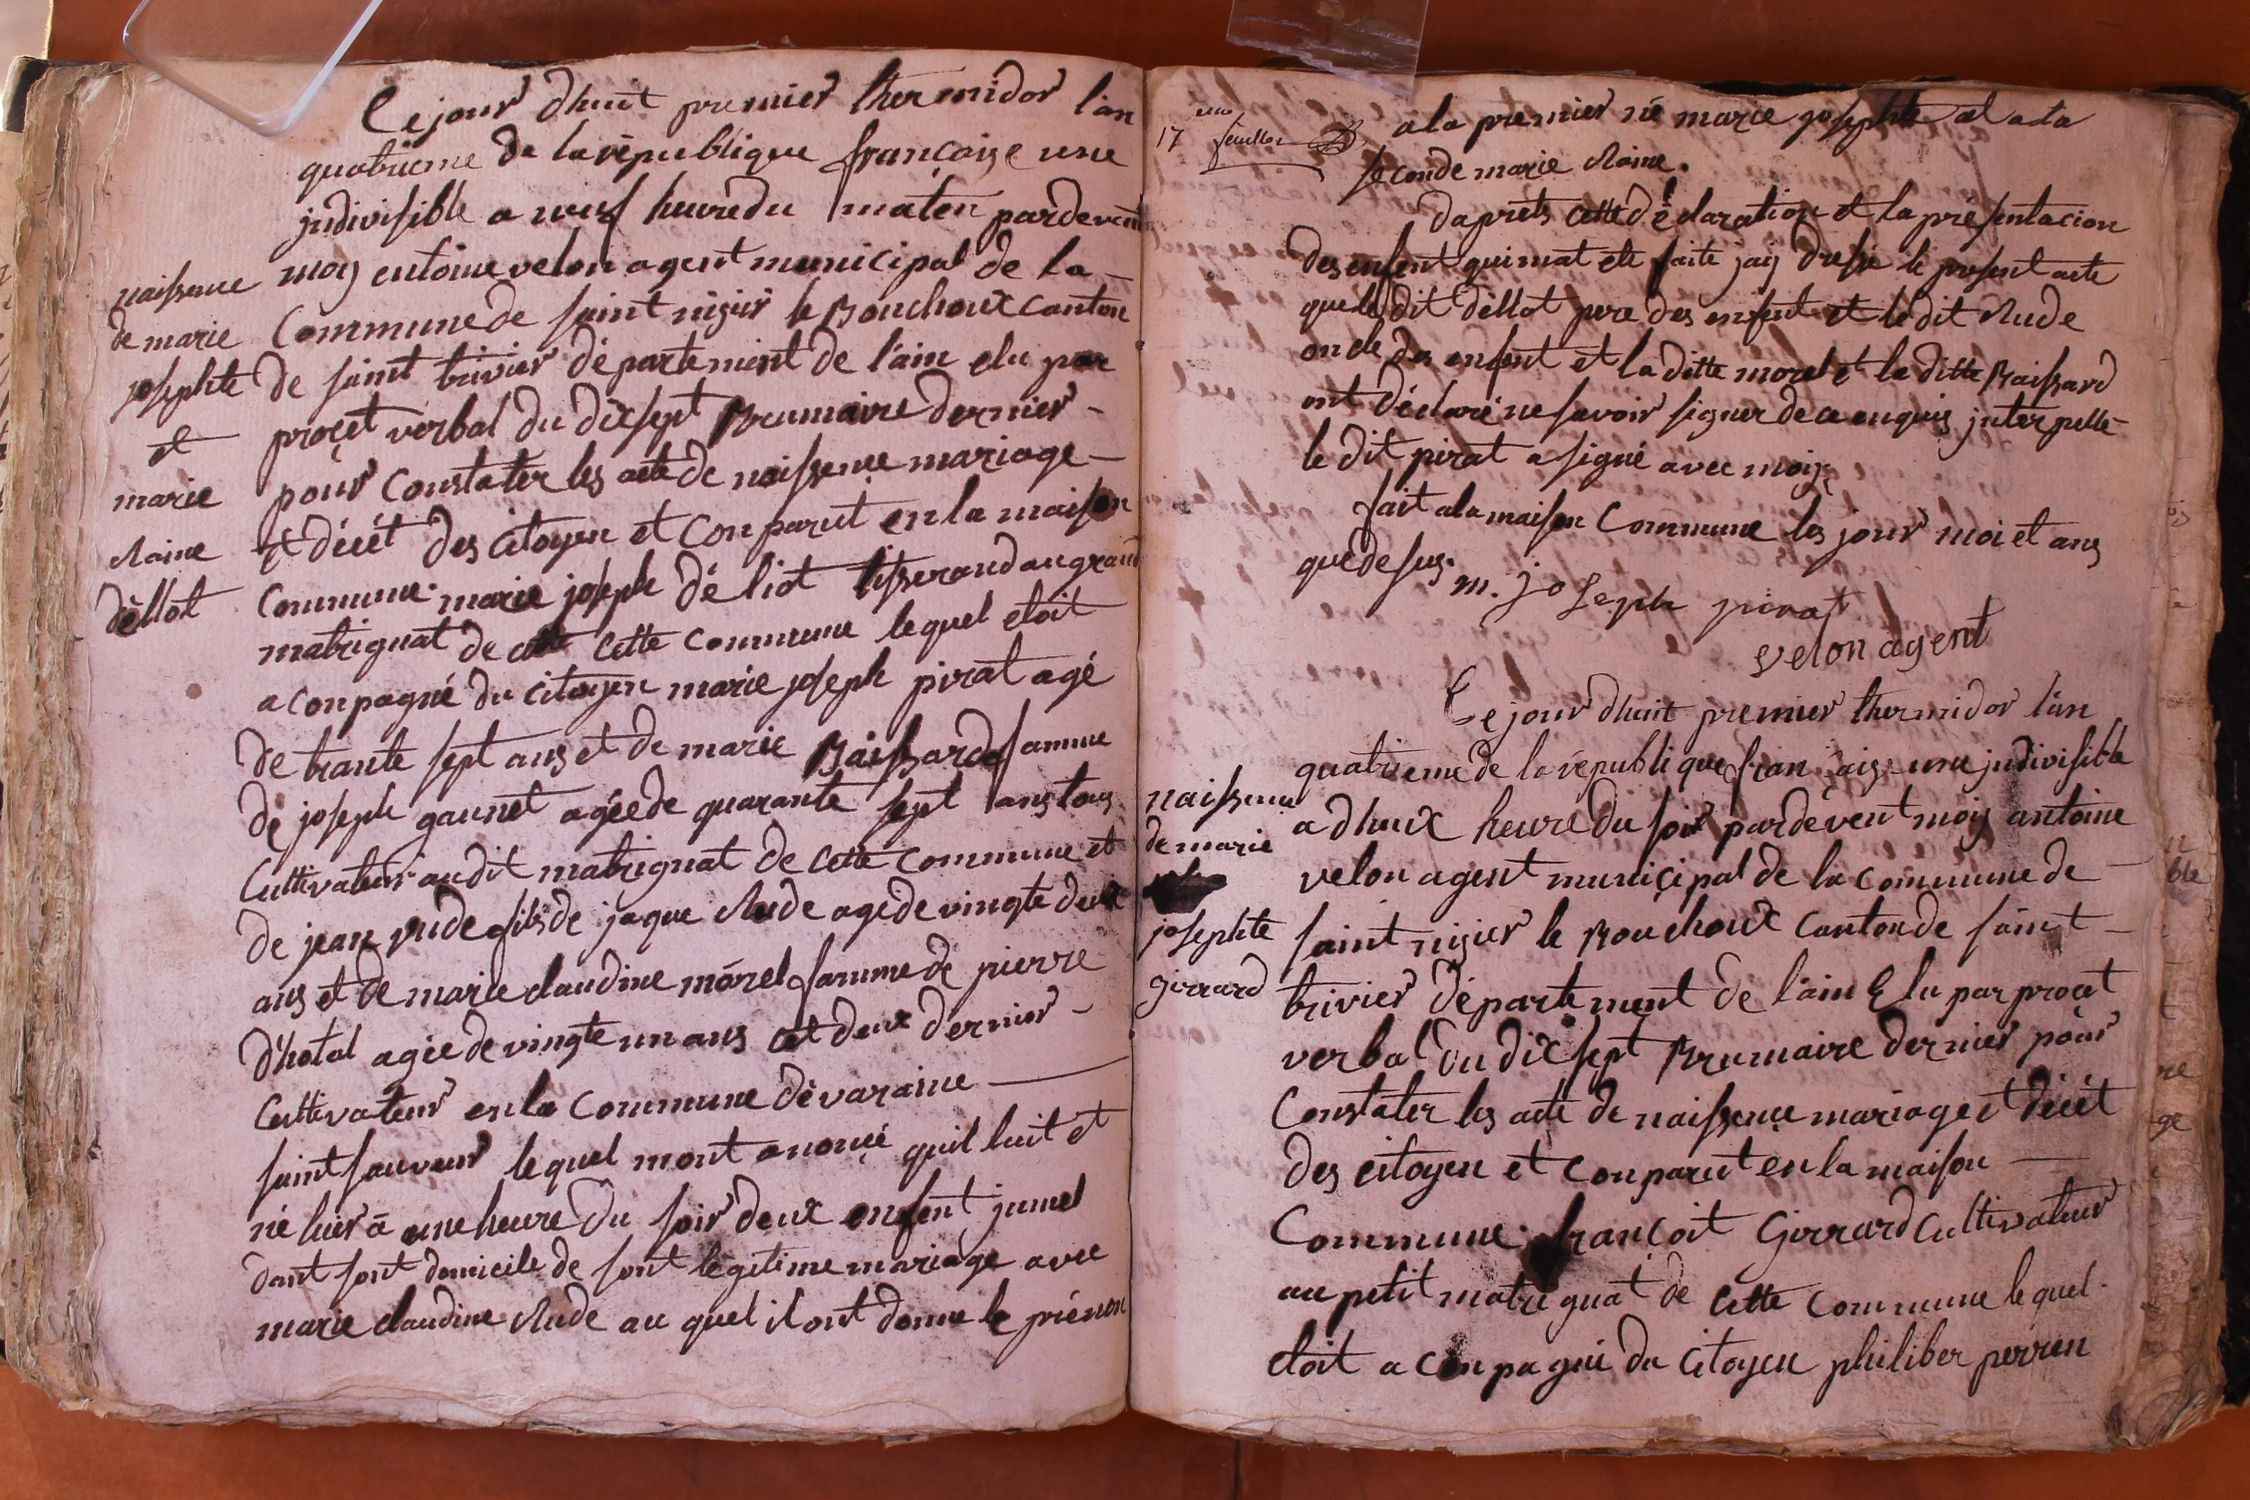 Cejour dhuit premier thermidor l'an
quatrieme de la république françoise une
jndivisible a neuf heure du maten pardevent
naissence
de marie
josephte
et
marie
claine
dèllot
moy entoine velon agent municipal de la
Commune de saint nizier le Bouchoux canton
de saint trivier département de l'ain elu par
proçet verbal du dixsept Brumaire dernier
pour Constater les acte de naissence mariage
et décét des citoyen et Conparut en la maison
Commune. marie joseph déliot tisserand au grand
matrignat de cette commune lequel etoit
aconpagné du citoyen marie joseph pirat agé
de trante sept ans et de marie Baissard famme
de joseph gaunet agée de quarante sept ans tous
Cultivateur au dit matrignat de cette commune et
de jean rude fils de jaque Rude age de vingte deux
ans et de marie claudine morel famme de pierre
d'hotal agée de vingte un ans cet deux dernier
Cultivateur en la Commune de varaine
saint sauveur lequel mont anoncé quil luit et
né hier à une heure du soir deux enfent jumel
dant sont domicile de sont légitime mariage avec
marie claudine Rude au quel il ont donne le prénon
17 eme feuillet
a la premier né marie josephte et a la
seconde marie claine.
daprèts cette déclaration et la présentacion
des enfent qui mat ete faite jaij dresse le present acte
que le dit dèllot pere des enfent et le dit Rude
oncle des enfent et la ditte morel et la ditte Baissard
ont déclaré ne savoir signer de ce enquis jnterpellé
le dit pirat a signé avec moij
fait a la maison Commune les jour moi et ans
que de sus.
m. joseph pirat
velon agent
Cejour dhuit premier thermidor l'an
quatrieme de la république françaige une jndivisible
naissence
de marie
josephte
girrard
a dheux heure du soir pardevent moij antoine
velon agent municipal de la commune de
saint nizier le Bouchoux Canton de saint
trivier département de l'ain Elu par procet
verbal du dix sept Brumaire dernier pour
Constater les acte de naissence mariage et décét
des citoyen et Conparut en la maison
Commune. françoit Girrard cultivateur
au petit matrignat de cette commune lequel
etoit aconpagné du Citoyen philiber perren